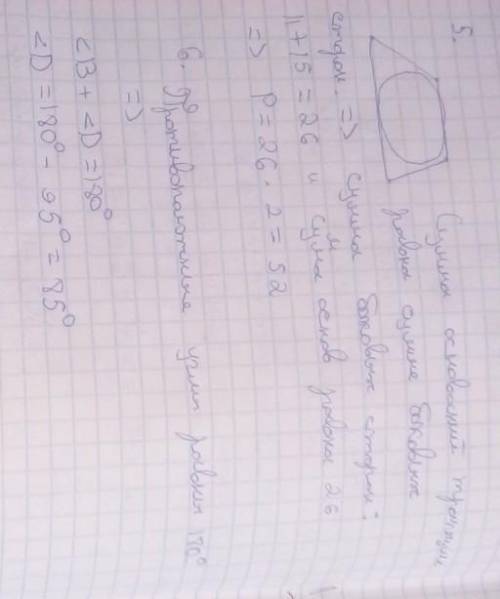 5. Сумма оснований трапеции
равна сумме боковых
сторон. => сумма боковых сторон:
11+15=26 и сумм основ равна 26
=> P=26·2=52
6. Противоположные углы равны 180°
=>
<B+<D=180°
<D=180°-95°=85°